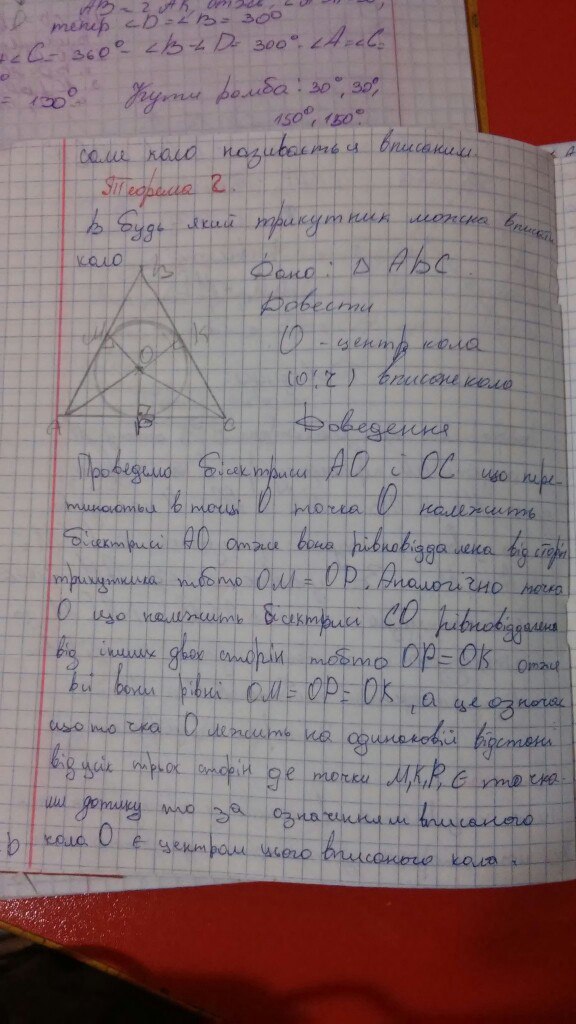 AB = 2
тепер ∠D = ∠B = 30°
∠C = 360° - ∠B - ∠D = 300° ∠A = ∠C =
Кути ромба: 30°, 30°,
150°, 150°
саме коло називається вписаним.
Теорема 2.
В будь який трикутник можна вписати
коло
Дано: Δ ABC
Довести
O - центр кола
(O; r) вписане коло
Доведення
B
M
K
O
A
P
C
Проведемо бісектриси AO і OC що пере-
тинаються в точці O точка O належить
бісектрисі AO отже вона рівновіддалена від сторін
трикутника тобто OM = OP. Аналогічно точка
O що належить бісектрисі CO рівновіддалена
від інших двох сторін тобто OP = OK отже
всі вони рівні OM = OP = OK, а це означає
що точка O лежить на одинаковій відстані
від усіх трьох сторін де точки M, K, P, є точка-
ми дотику то за означенням вписаного
кола O є центром цього вписаного кола.